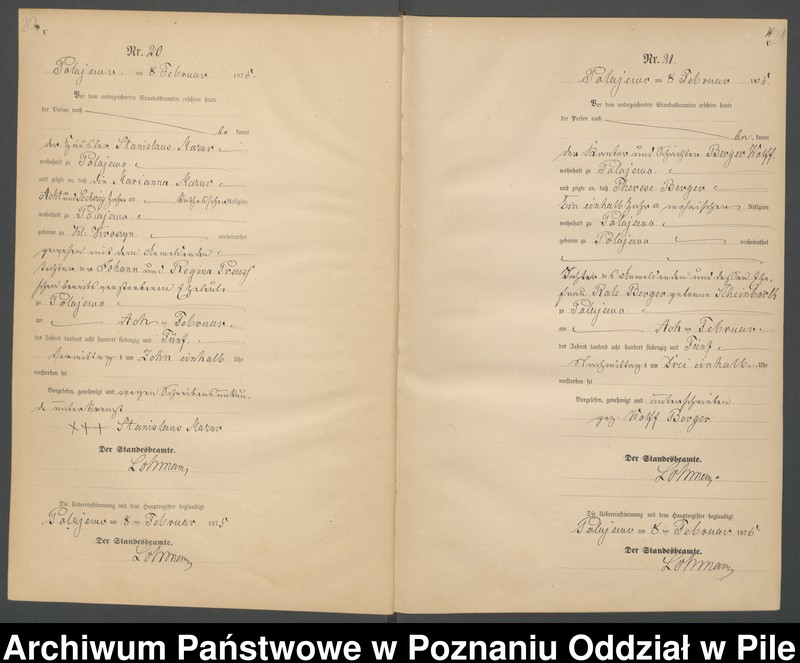 Nr. 20
Polajewo am 8 Februar 1875.
Vor dem unterzeichneten Standesbeamten erschien heute
der Person nach
be kannt
der Häusler Stanislaus Mazur
wohnhaft zu Polajewo
und zeigte an, daß die Marianna Mazur
Acht und Sechzig Jahre alt katholischer Religion
wohnhaft zu Polajewo
geboren zu verheirathet
gewesen mit dem Anmeldenden
Tochter der Johann und Regina Preuss
schen bereits verstorbenen Eheleute
zu Polajewo
am Acht ten Februar
des Jahres tausend acht hundert siebenzig und Fünf
Vormittags um Zehn einhalb Uhr
verstorben sei
Vorgelesen, genehmigt und wegen Schreibensunkun-
de unterkreuzt
+++ Stanislaus Mazur
Der Standesbeamte.
Lohmann
Die Uebereinstimmung mit dem Hauptregister beglaubigt
Polajewo am 8 ten Februar 1875
Der Standesbeamte.
Lohmann
Nr. 21.
Polajewo am 8 Februar 1875
Vor dem unterzeichneten Standesbeamten erschien heute
der Person nach
be kannt
der Kantor und Schächter Berger Wolff
wohnhaft zu Polajewo
und zeigte an, daß Therese Berger
Ein einhalb Jahr alt mosaischer Religion
wohnhaft zu Polajewo
geboren zu Polajewo
verheirathet
Tochter des Anmeldenden und dessen Ehe-
frau Berger geborene
zu Polajewo
am Acht ten Februar
des Jahres tausend acht hundert siebenzig und Fünf
Nachmittags um Drei einhalb Uhr
verstorben sei
Vorgelesen, genehmigt und unterschrieben
gez Wolff Berger
Der Standesbeamte.
Lohmann
Die Uebereinstimmung mit dem Hauptregister beglaubigt
Polajewo am 8 ten Februar 1875
Der Standesbeamte.
Lohmann
Archiwum Państwowe w Poznaniu Oddział w Pile